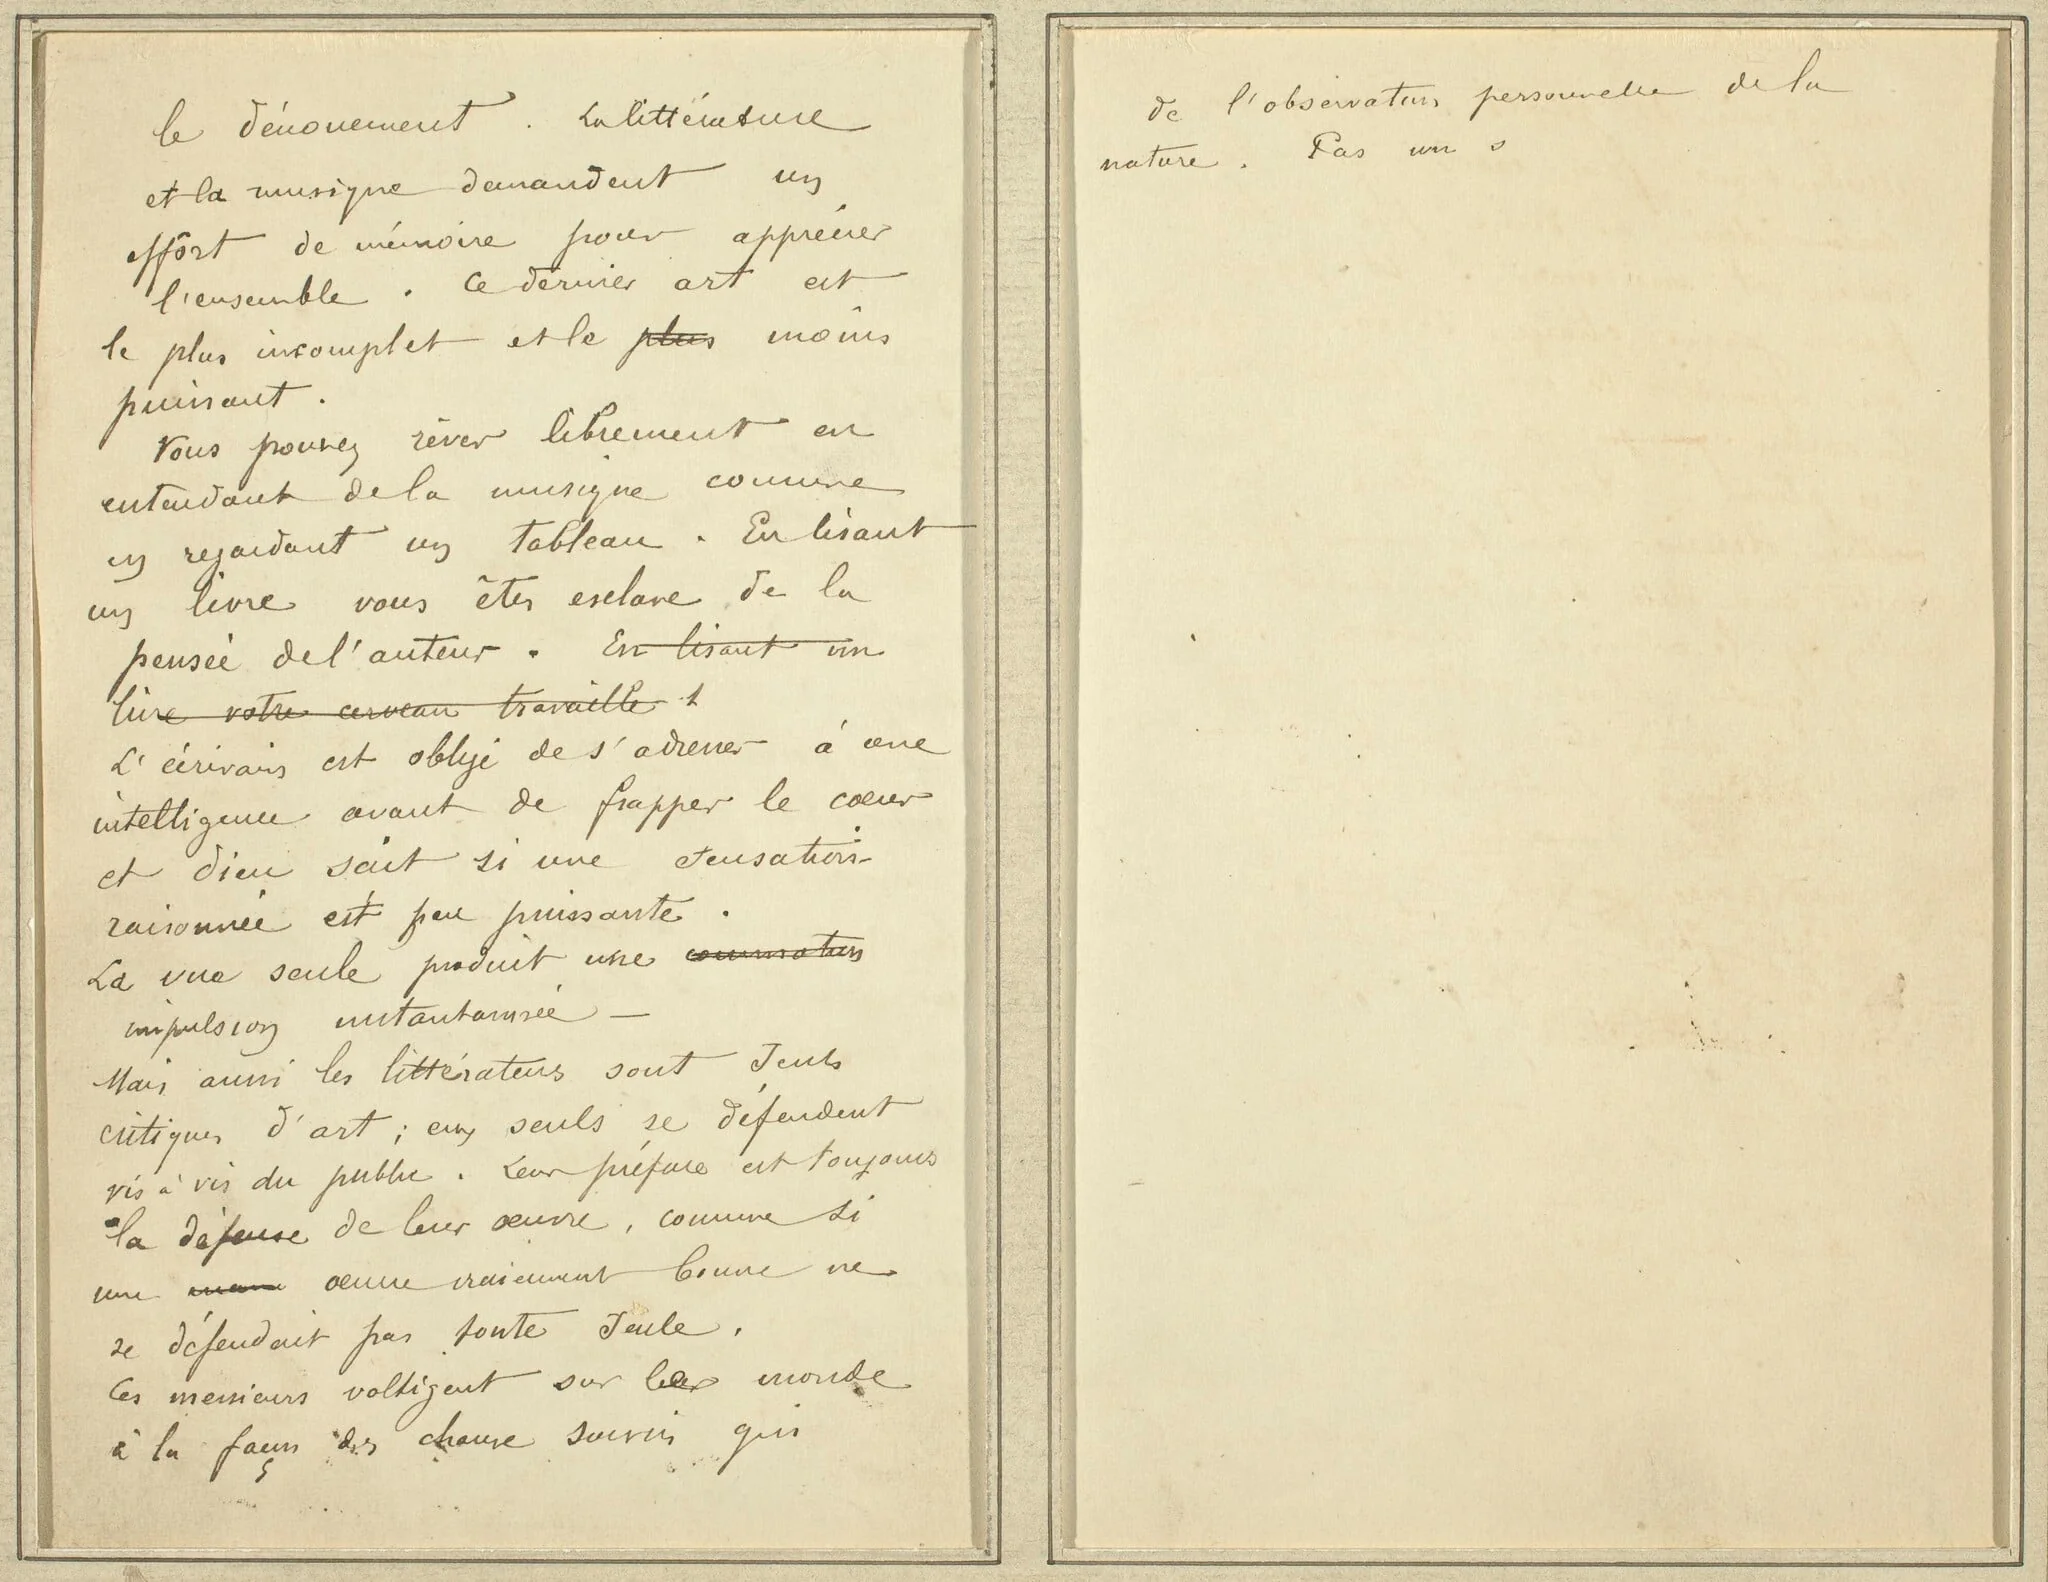 le dénouement. La littérature
et la musique demandent un
effort de mémoire pour apprécier
l'ensemble. Ce dernier art est
le plus incomplet et le plus moins
puissant.
Vous pouvez rêver librement en
entendant de la musique comme
en regardant un tableau. En lisant
un livre vous êtes esclave de la
pensée de l'auteur. En lisant un
livre votre cerveau travaille
L'écrivain est obligé de s'adresser à une
intelligence avant de frapper le coeur
et dieu sait si une sensation
raisonnée est peu puissante.
La vue seule produit une
impulsion instantannée —
Mais aussi les littérateurs sont seuls
critiques d'art ; eux seuls se défendent
vis à vis du public. Leur préface est toujours
la défense de leur œuvre, comme si
une œuvre vraiement bonne ne
se défendait pas toute seule.
Ces messieurs voltigent sur le monde
à la façon des chauve souris qui
de l'observation personnelle de la
nature. Pas un s